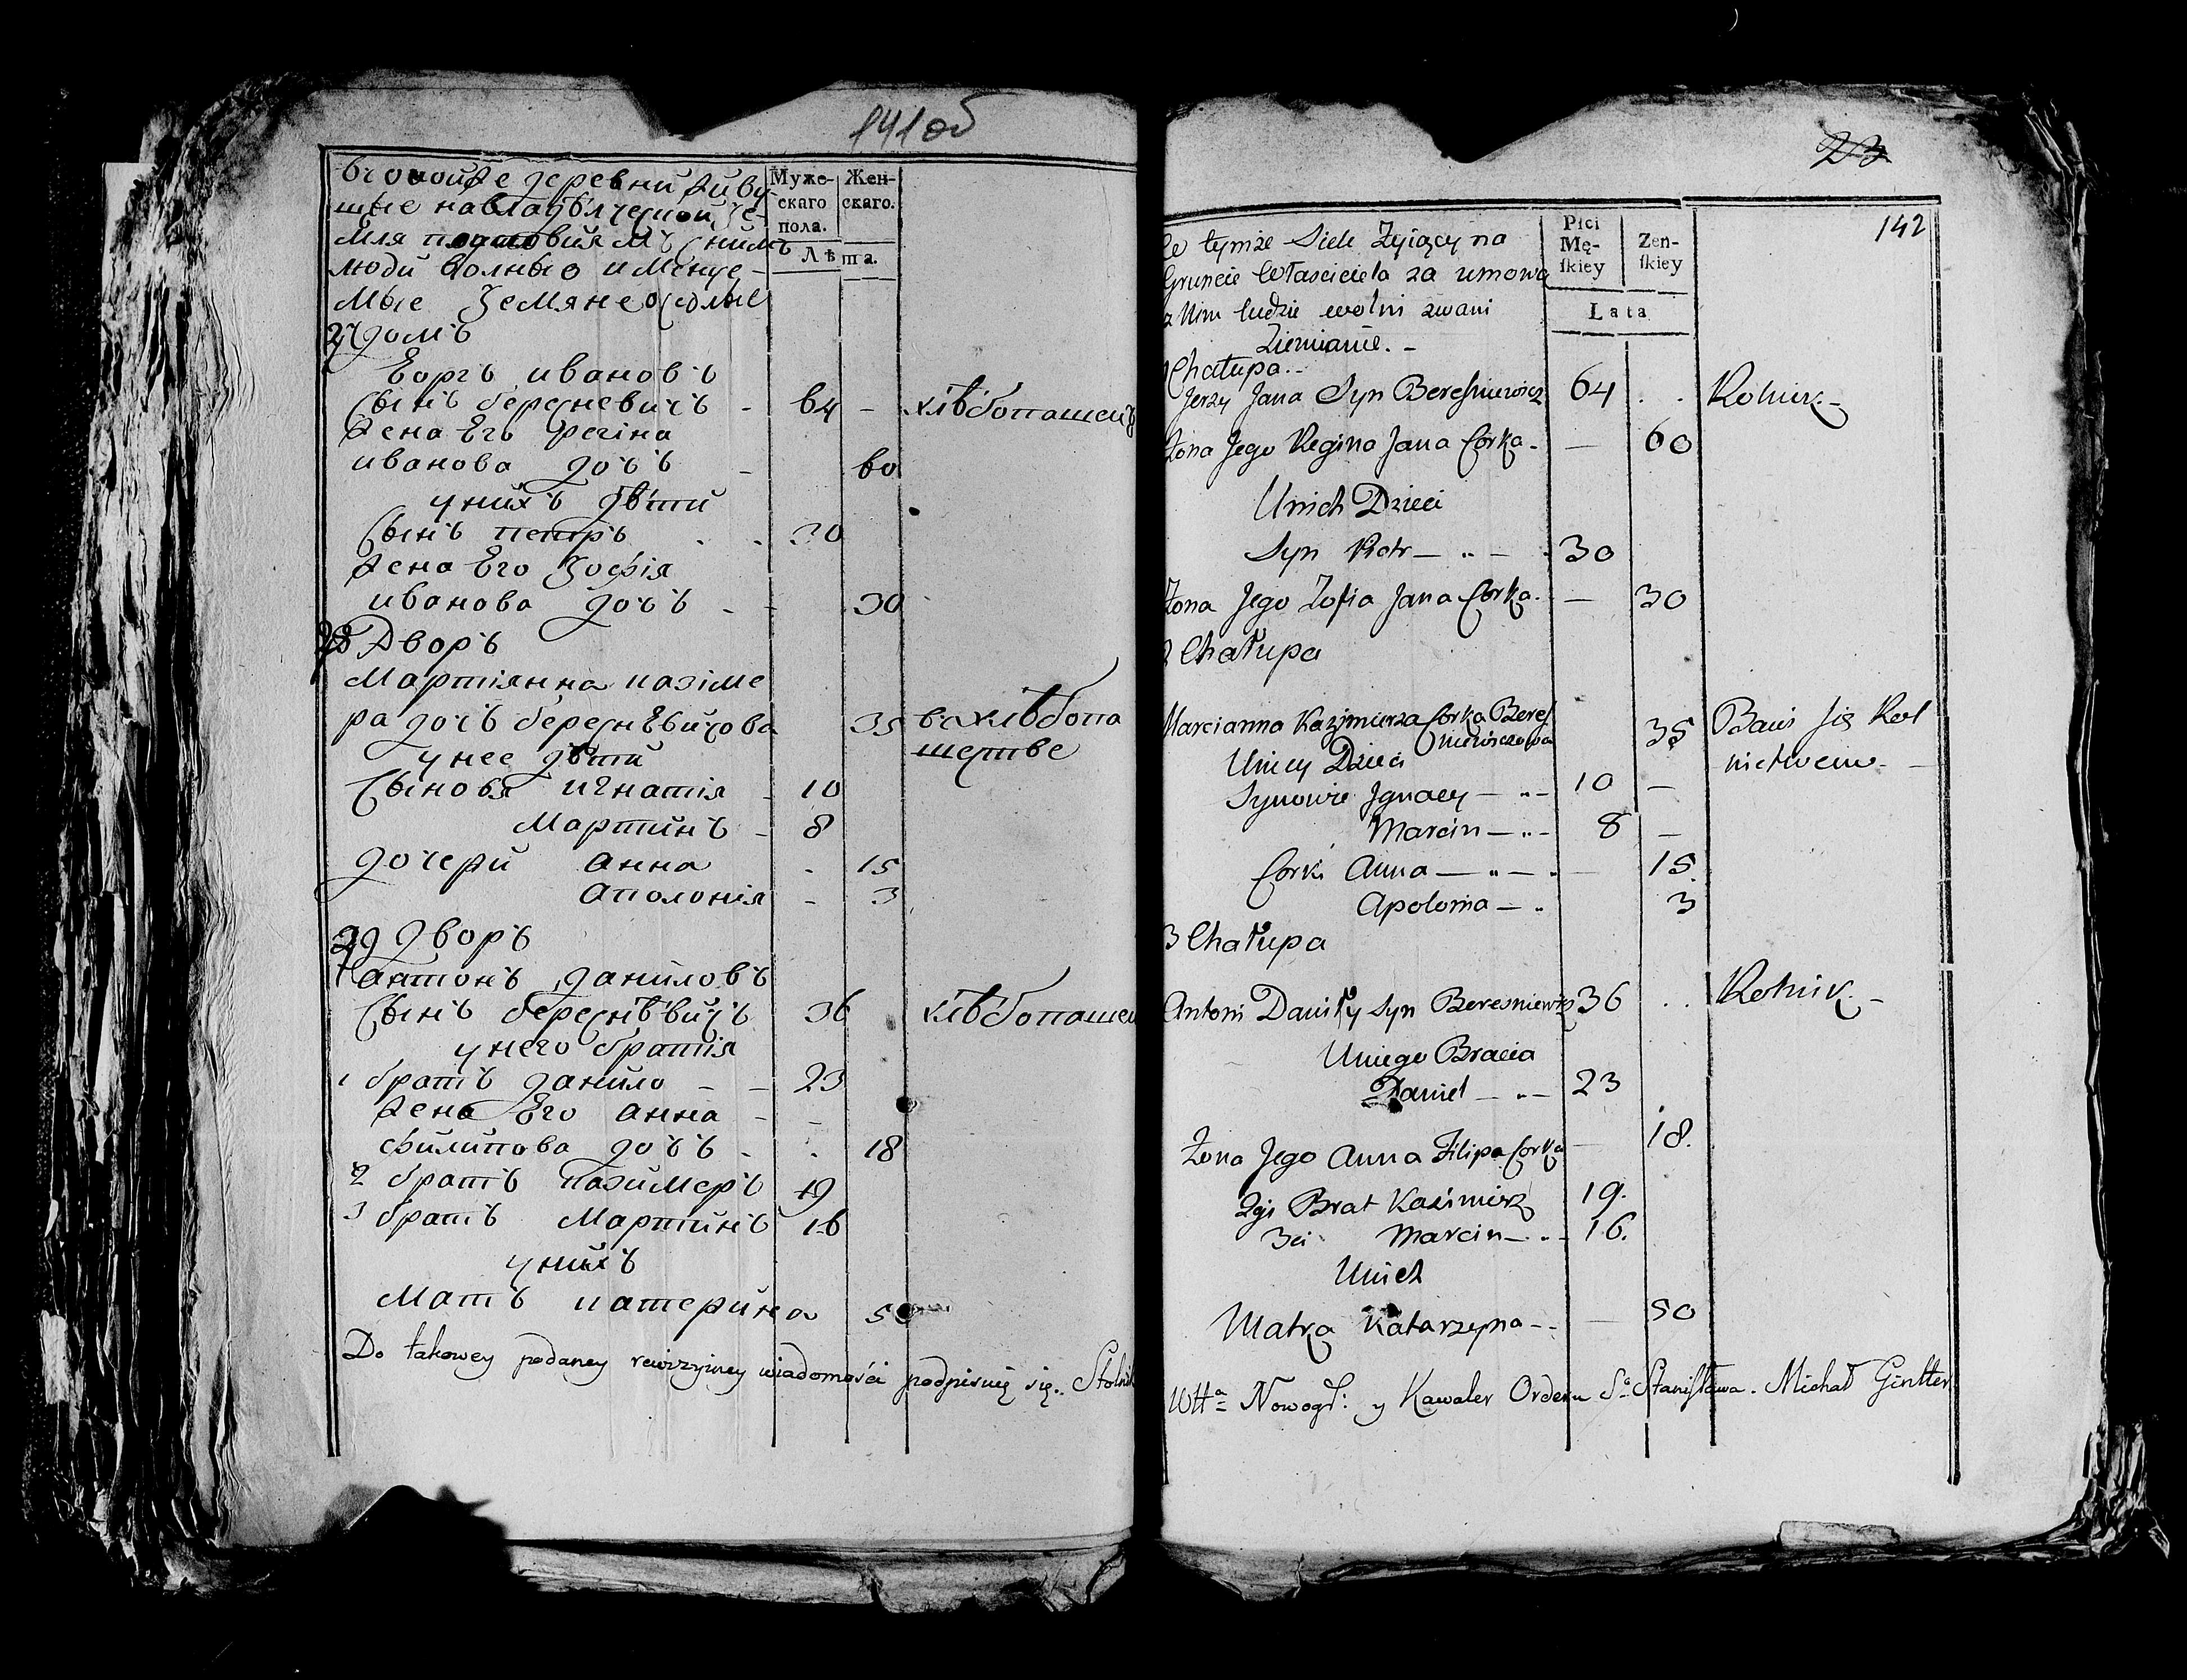 141 об
Муже-
скаго
пола.
Жен-
скаго.
Лѣта.
деревни живу
щие на
мля
люди волные и менуе-
мые земяне оседлые
27 домъ
Еоргъ ивановъ
сынъ бересневичъ - 64 - хлѣбопашец
жена Его регіна
иванова дочъ - 60
у нихъ дѣти
сынъ петръ . . 30
жена Его зофія
иванова дочъ - - 30
28 Дворъ
Мартіянна казіме
ра дочъ береснЕвичова 35 в хлѣбопа
у нее дѣти шестве
сыновя игнатія - 10
Мартинъ - 8
дочери анна . 15
аполонія - 3
29 дворъ
антонъ даниловъ
сынъ береснѣвичъ 36 хлѣбопашец
у него братія
1 братъ данило - - 23
жена Его анна -
филипова дочъ - . 18
2 братъ казимеръ 19
3 братъ Мартинъ 16
у нихъ
Мать катерина 50
Do takowey podaney rewizyiney wiadomości podpisuię się.. Stolnik
23
142
Płci
Mę-
skiey
Zeń-
skiey
Lata
tymże Siele Zyiący na
Gruncie Własciciela za umową
z Nim ludzie wolni zwani
Ziemianie. -
Chałupa. -
Jerzy Jana Syn Beresniewicz 64 . . Rolnik -
Żona Jego Regina Jana Corka - — 60
Unich Dzieci
Syn Piotr — .. — . 30
Żona Jego Zofia Jana Corka. — 30
2 Chałupa
Marcianna Kazimierza Corka Beres
niewiczowa 35 Bawi się Rol
Uniey Dzieci nictwem -
Synowie Jgnacy — .. — 10 —
Marcin — .. - 8 —
Corki Anna — .. — . — 15.
Apolonia — .. 3
3 Chałupa
Antoni Daniły syn Beresniewicz 36 . . Rolnik. -
Uniego Bracia
Daniel — .. — 23
Żona Jego Anna Filipa Corka — 18.
2gi Brat Kazimierz 19.
3ci Marcin — .. - 16.
Unich
Matka Katarzyna - - — 50
Wttа Nowogr: y Kawaler Orderu Sº Stanisława. Michał Gintter